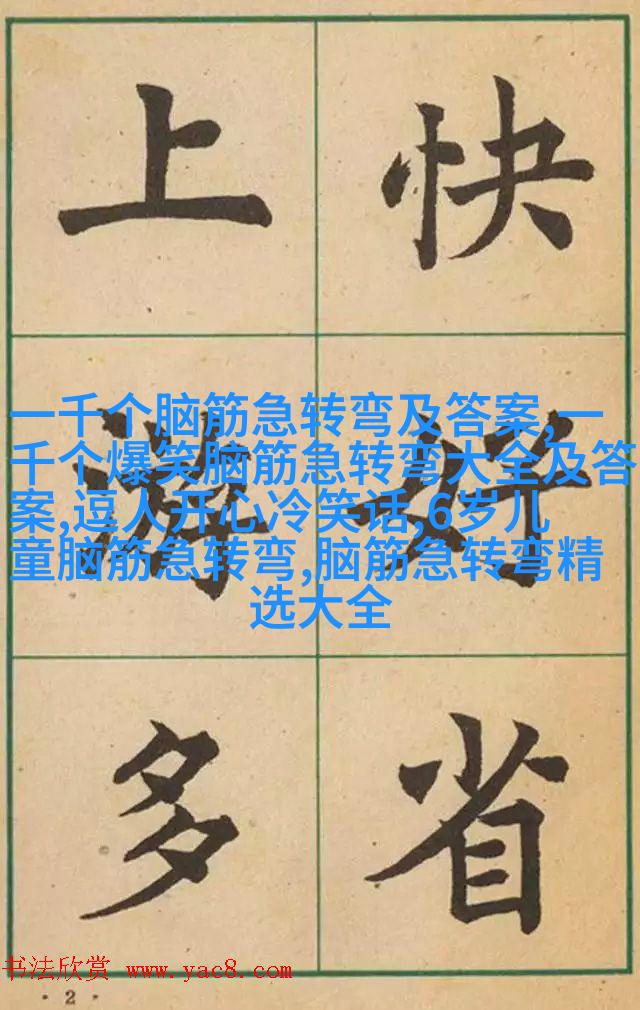 上 快
游 好
一千个脑筋急转弯及答案,一
千个爆笑脑筋急转弯大全及答
案,逗人开心冷笑话,6岁儿
童脑筋急转弯,脑筋急转弯精
选大全
多 省
书法欣赏 www.yac8.com
·2·